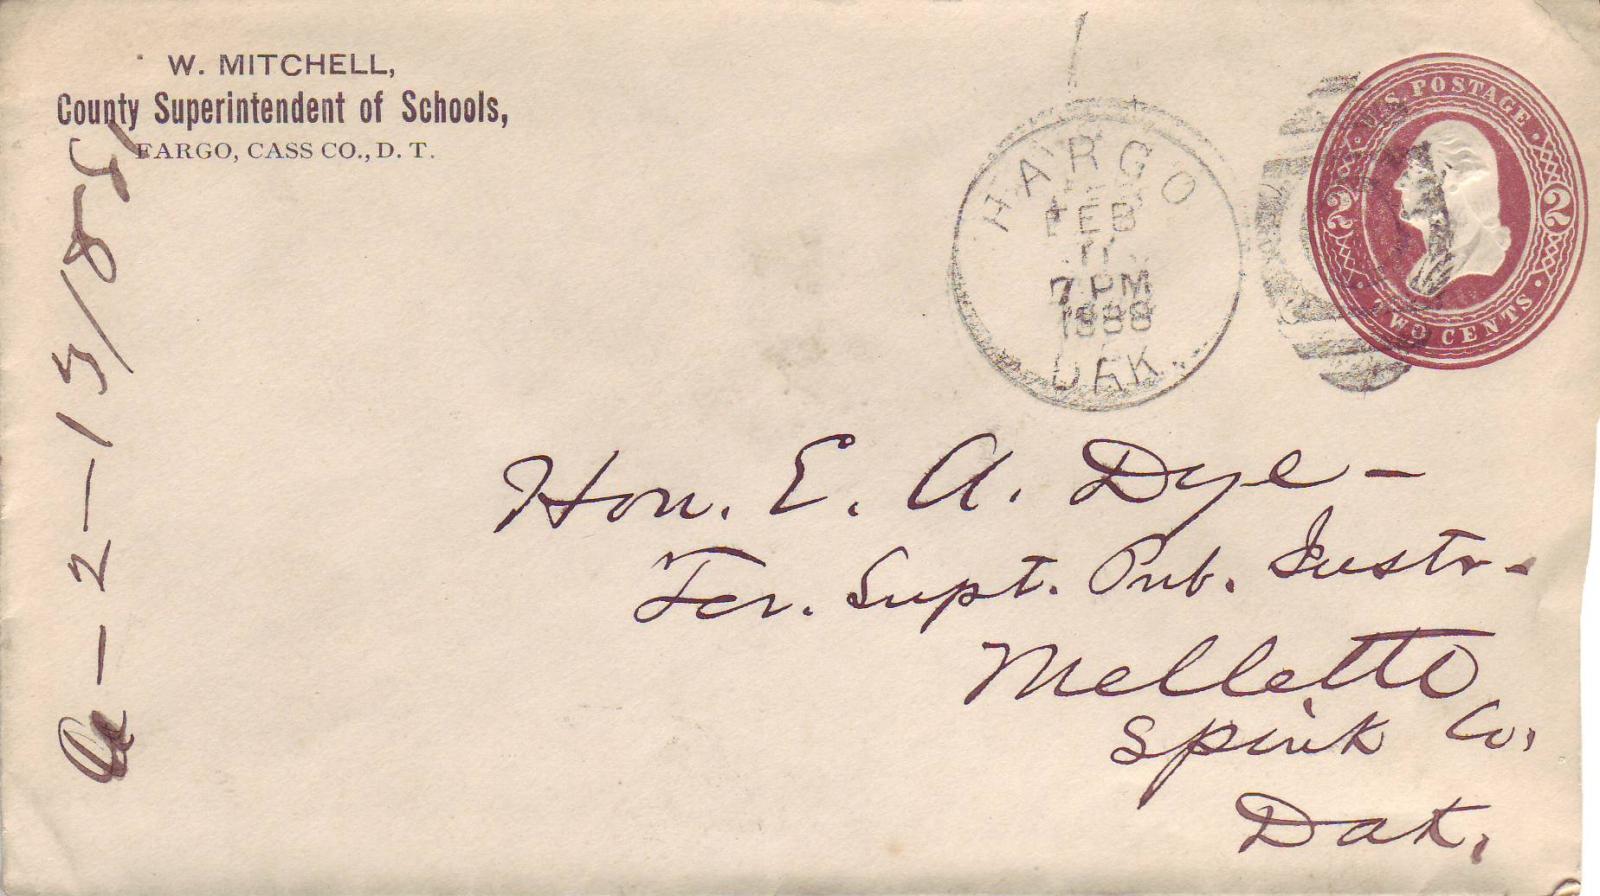 W. MITCHELL,
County Superintendent of Schools,
FARGO, CASS CO., D. T.
FARGO
FEB
11
7 PM
1888
DAK.
U.S. POSTAGE
2 2
TWO CENTS
Hon. E. A. Dye-
Ter. Supt. Pub. Instr-
Mellette
Spink Co.
Dak.
a-2-13/88